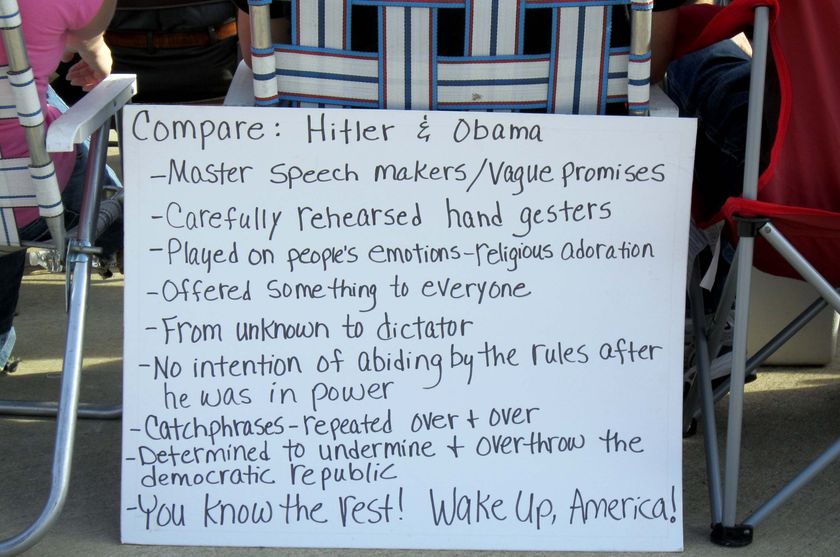 Compare: Hitler & Obama
-Master speech makers/Vague promises
-Carefully rehearsed hand gesters
-Played on people's emotions-religious adoration
-Offered something to everyone
-From unknown to dictator
-No intention of abiding by the rules after
he was in power
-Catchphrases-repeated over + over
-Determined to undermine + overthrow the
democratic republic
-You know the rest! Wake Up, America!